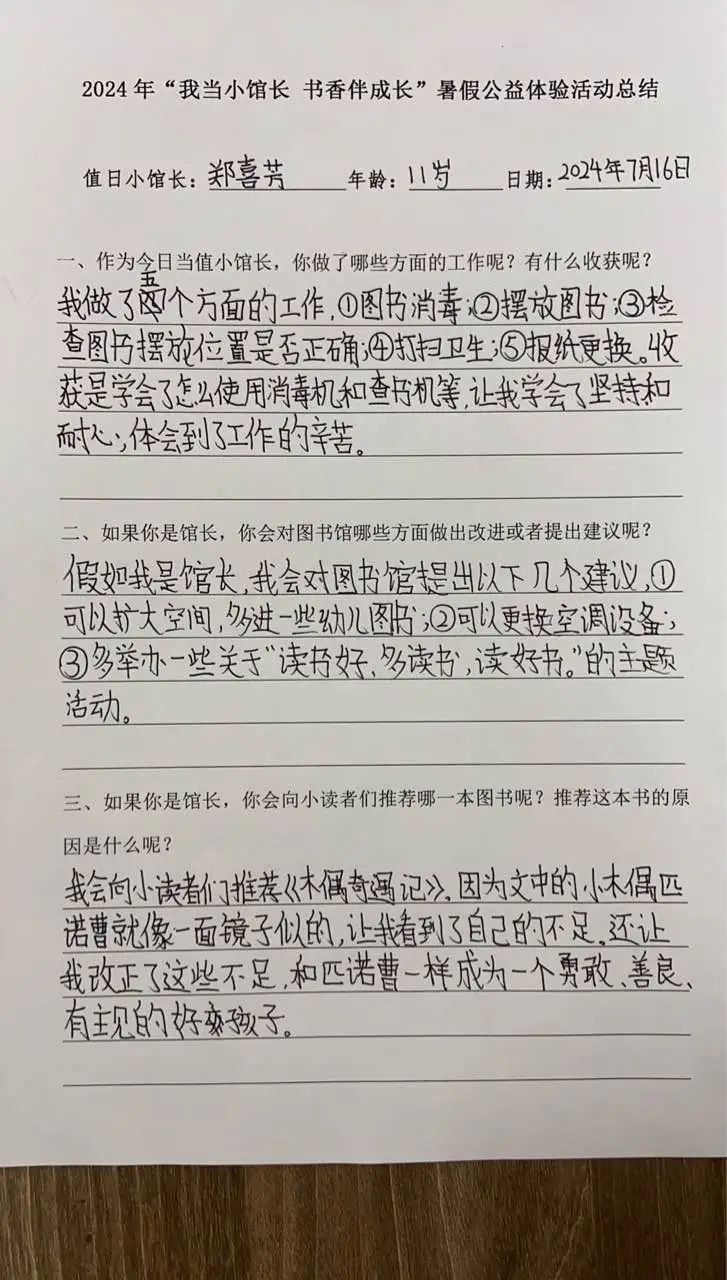 2024年“我当小馆长 书香伴成长”暑假公益体验活动总结
值日小馆长：郑喜芳 年龄：11岁 日期：2024年7月16日
一、作为今日当值小馆长，你做了哪些方面的工作呢？有什么收获呢？
我做了五个方面的工作，①图书消毒；②摆放图书；③检
查图书摆放位置是否正确；④打扫卫生；⑤报纸更换。收
获是学会了怎么使用消毒机和查书机等，让我学会了坚持和
耐心，体会到了工作的辛苦。
二、如果你是馆长，你会对图书馆哪些方面做出改进或者提出建议呢？
假如我是馆长，我会对图书馆提出以下几个建议，①
可以扩大空间，多进一些幼儿图书；②可以更换空调设备；
③多举办一些关于“读书好，多读书，读好书。”的主题
活动。
三、如果你是馆长，你会向小读者们推荐哪一本图书呢？推荐这本书的原
因是什么呢？
我会向小读者们推荐《木偶奇遇记》，因为文中的小木偶匹
诺曹就像一面镜子似的，让我看到了自己的不足，还让
我改正了这些不足，和匹诺曹一样成为一个勇敢、善良、
有主见的好孩子。